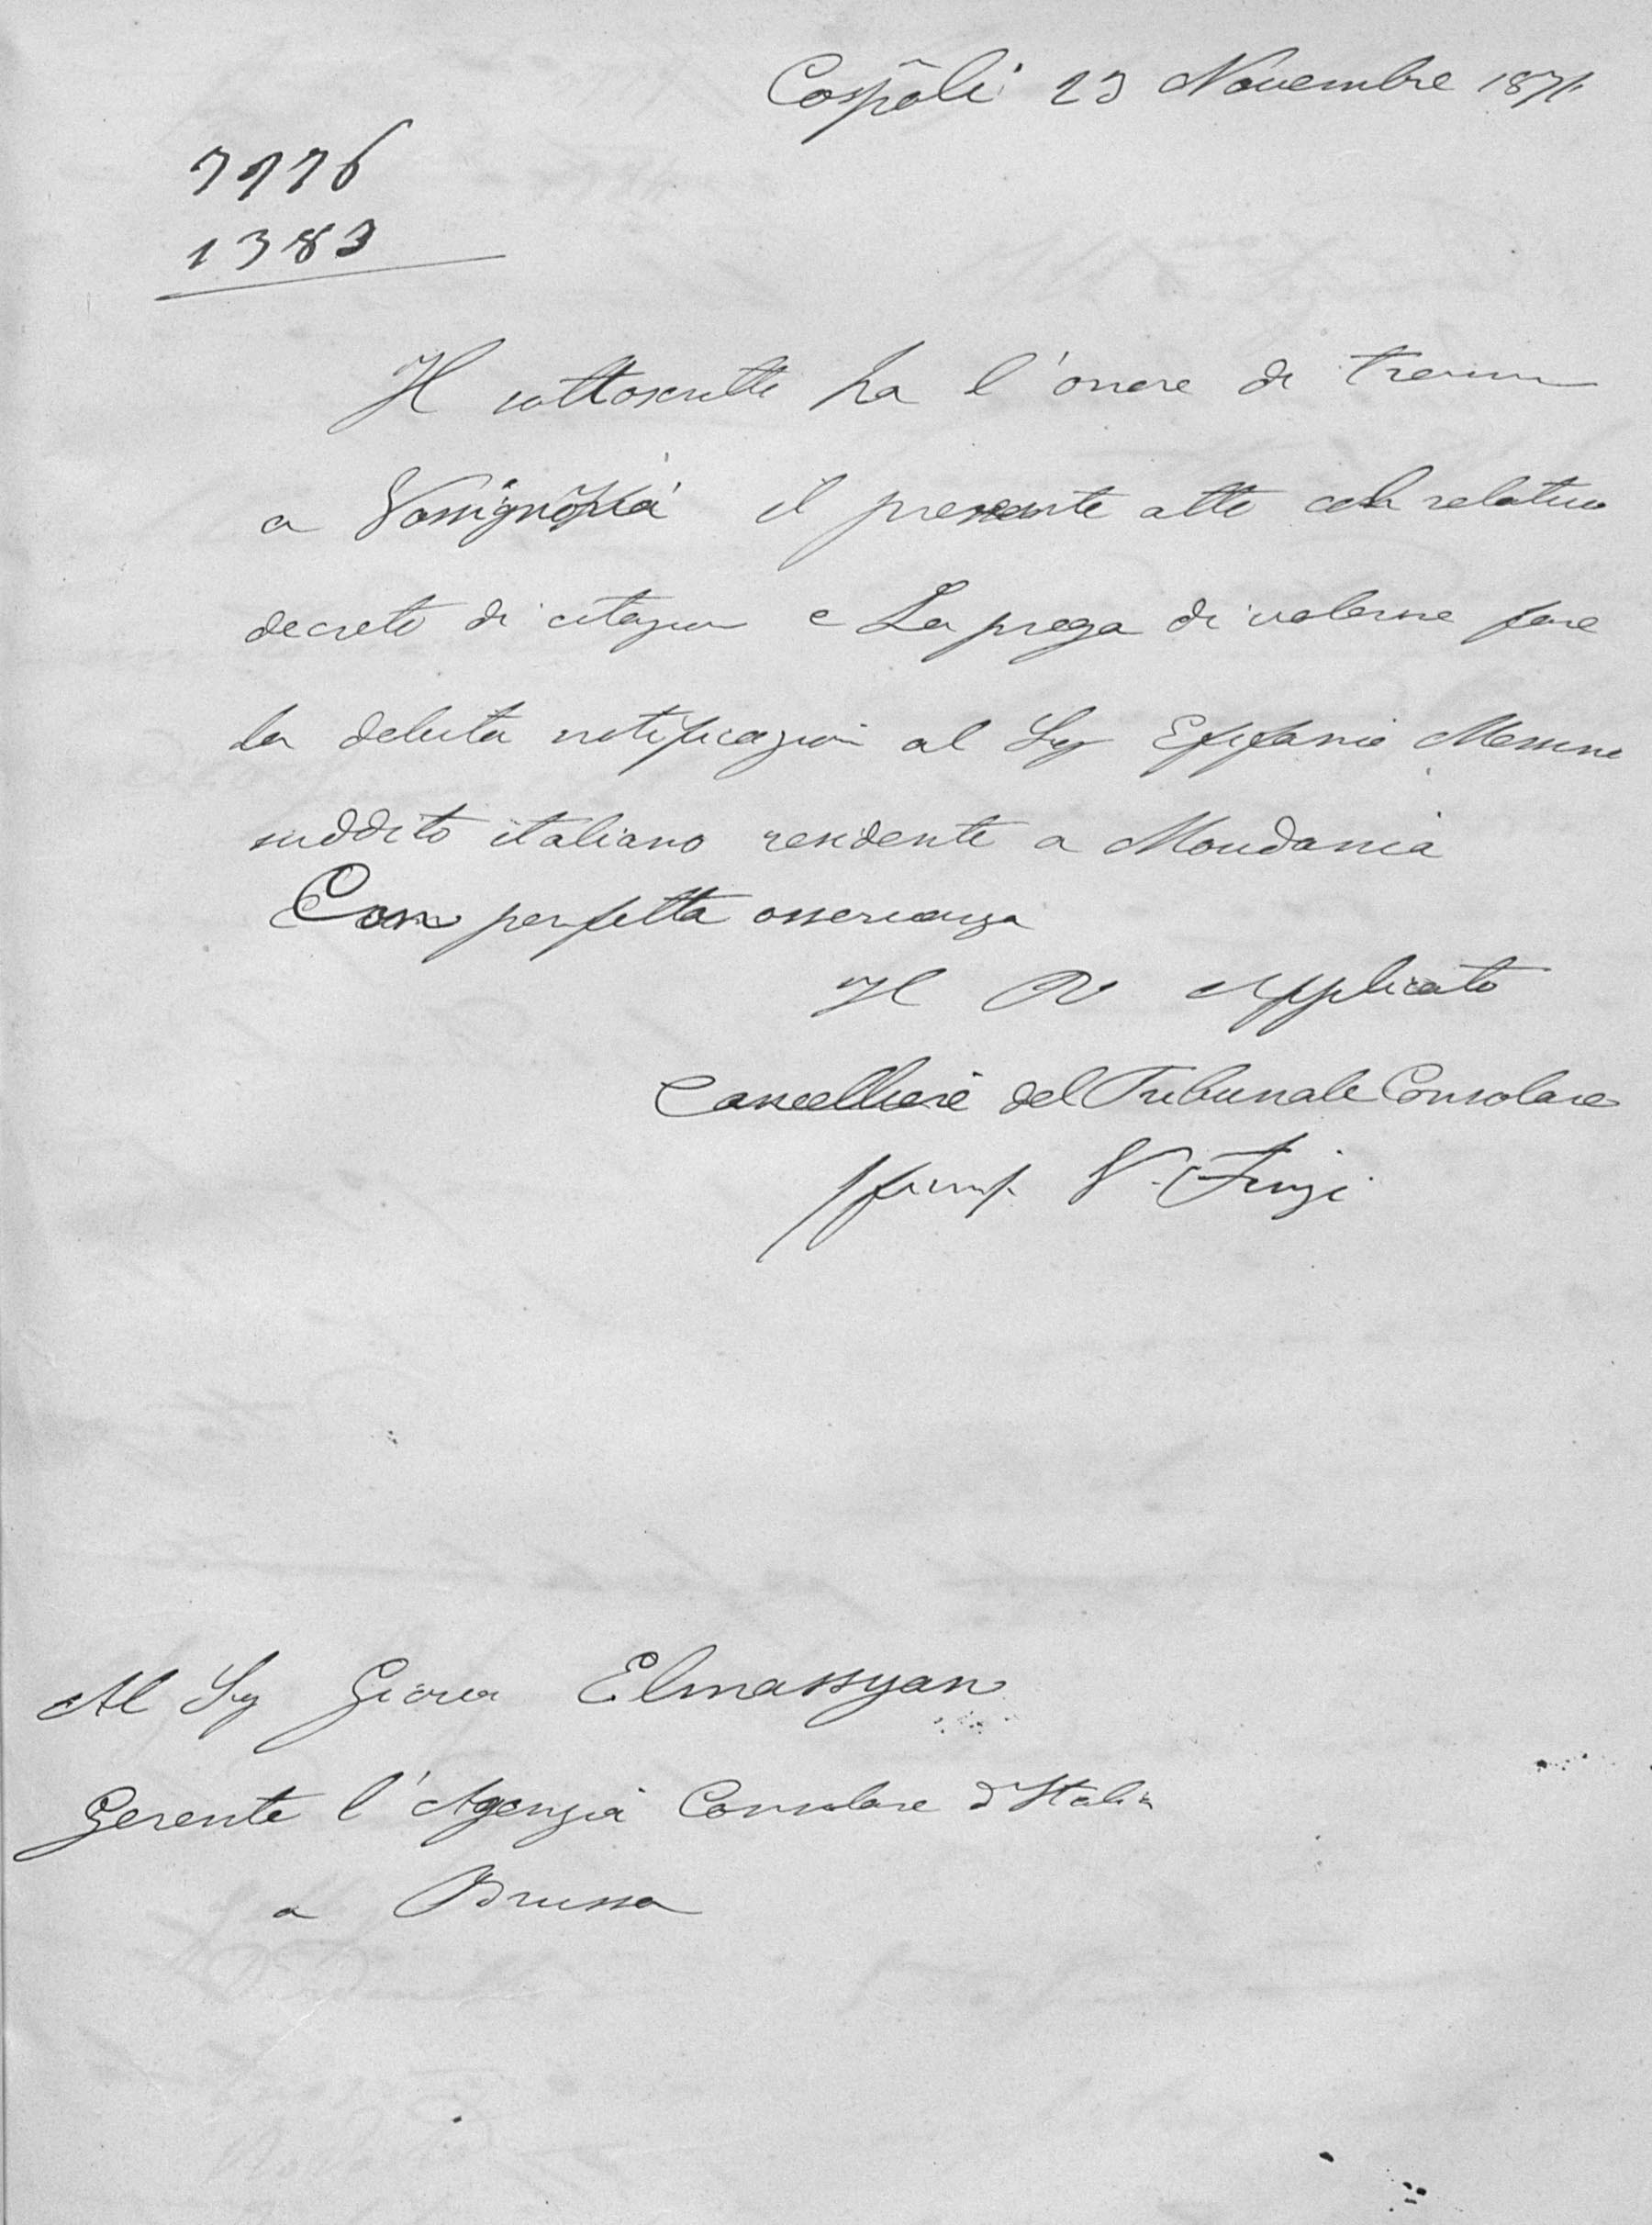 Cospoli 23 Novembre 1871
7776
1383
Il sottoscritto ha l'onore di
a Vossignoria il presente atto col relativo
decreto di citazion e La prega di volerne fare
la debuta notificazion al Sig Epifanio
suddito italiano residente a Moudania
Con perfetta osservanza
Il R Applicato
Cancelliere del Tribunale Consolare
V. Finzi
Al Sig Elmassyan
Gerente l'Agenzia Consolare d'Italia
a Brussa